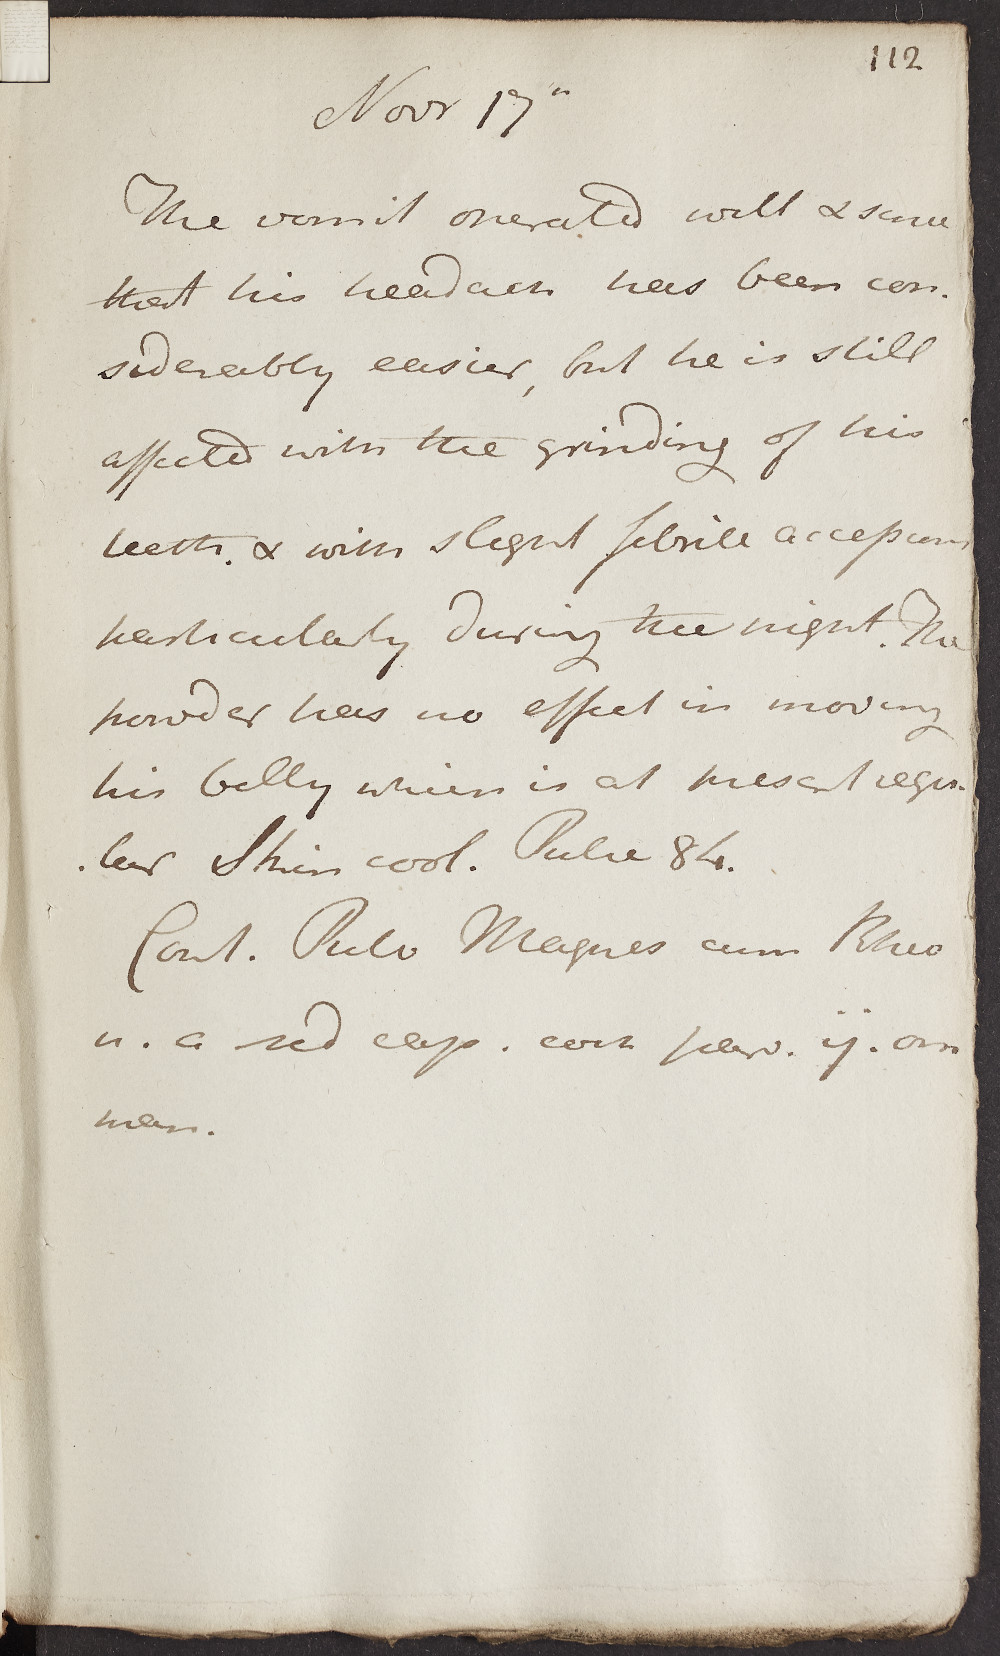 112
Novr 17"
The vomit operated well & since
that his headach has been con.
siderably easier, but he is still
affected with the grinding of his
teeth. & with slight febrile accessions
particularly during the night. The
powder has no effect in moving
his belly which is at present regu.
.lar Skin cool. Pulse 84.
Cont. Pulv Magnes cum Rheo
u. a sed cap. coch parv. ij. om
man.